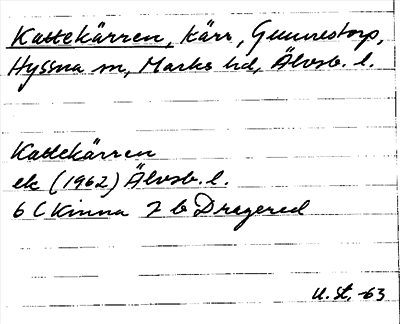 Kattekärren, kärr, Gunnestorp,
Hyssna sn, Marks hd, Älvsb. l.
Kattekärren
ek (1962) Älvsb. l.
6 C Kinna 7 b Dragered
U. St. -63